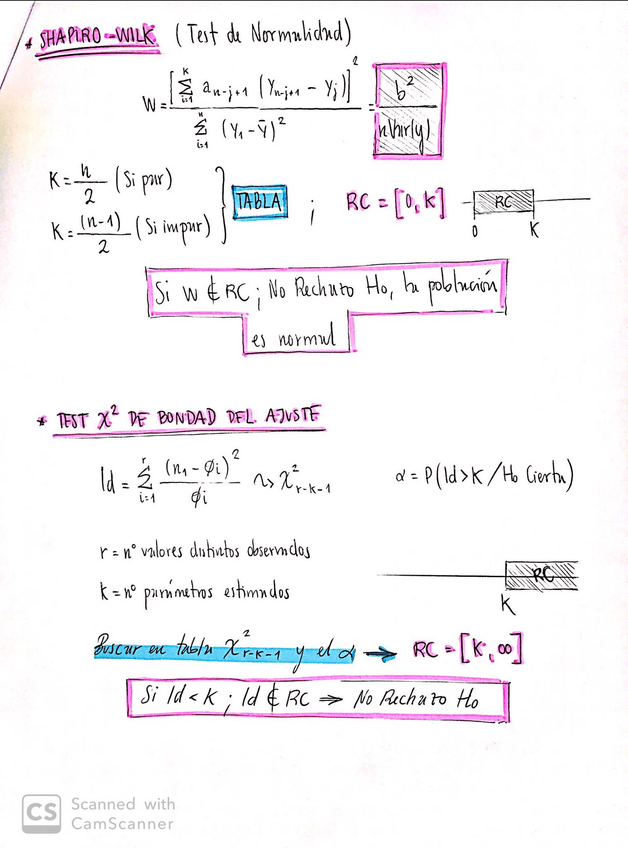 * SHAPIRO-WILK (Test de Normalidad)
W = [ K Σ i=1 a n-j+1 (Y n-j+1 - Yj) ]² / n Σ i=1 (Y1 - ȳ)² = b² / nVar(y)
K = n/2 (Si par)
K = (n-1)/2 (Si impar) } TABLA ; RC = [0, K] RC 0 K
Si W ∉ RC ; No Rechazo Ho, la población
es normal
* TEST X² DE BONDAD DEL AJUSTE
Id = r Σ i=1 (n1 - φi)² / φi ~> X² r-k-1 α = P(Id > K / Ho Cierta)
r = nº valores distintos observados
k = nº parámetros estimados
RC K
Buscar en tabla X² r-k-1 y el α → RC = [K, ∞]
Si Id < K ; Id ∉ RC ⇒ No Rechazo Ho
CS Scanned with
CamScanner